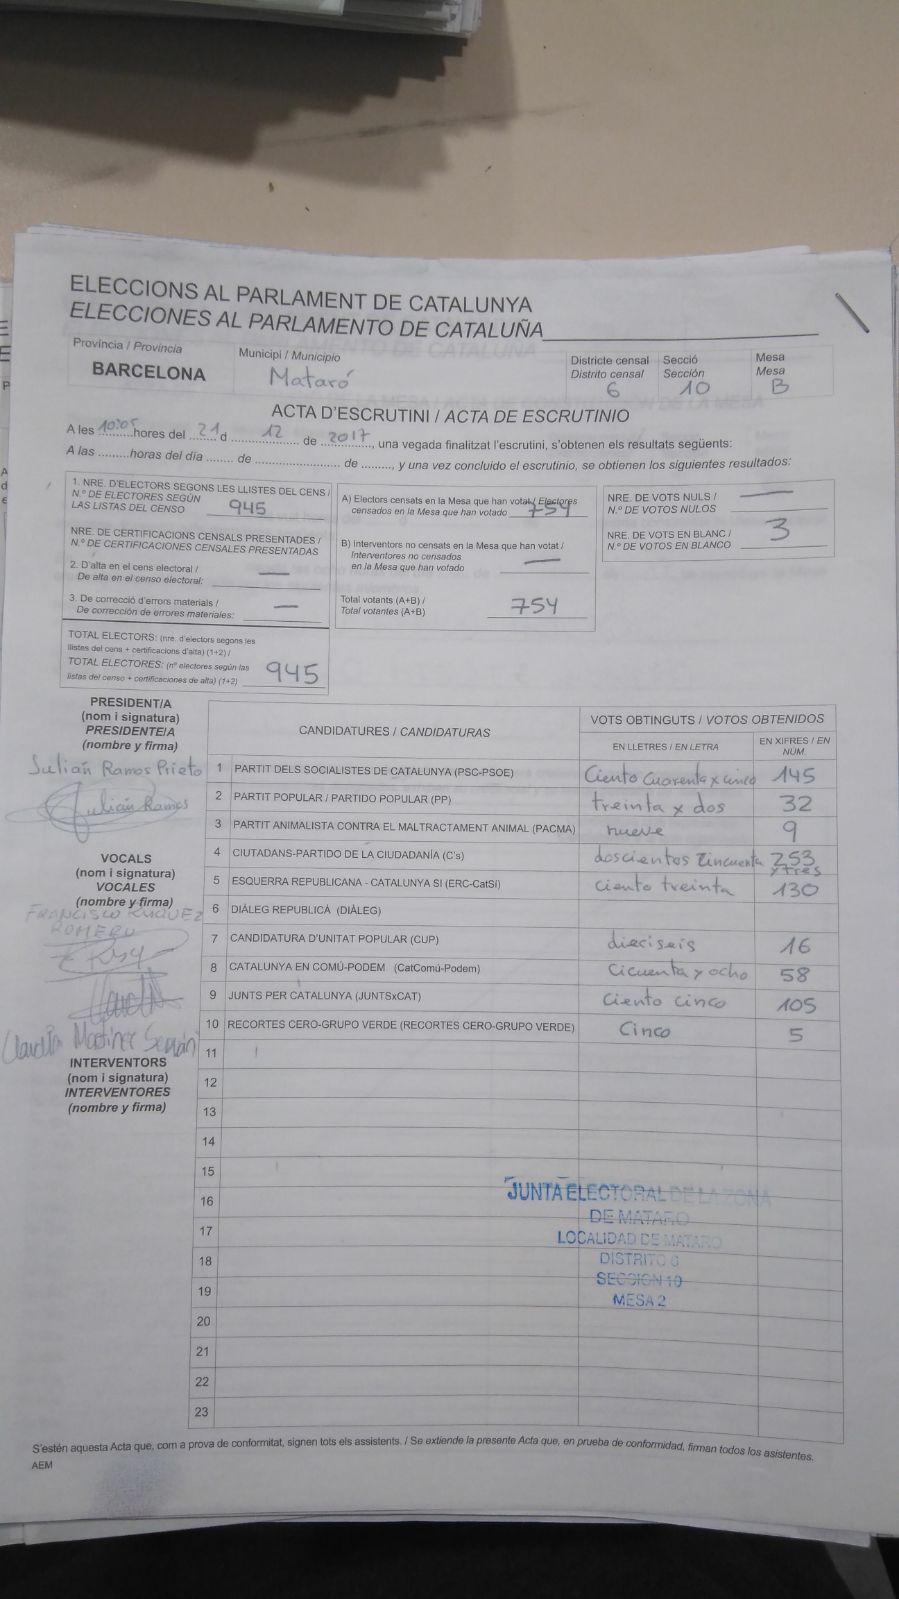 ELECCIONS AL PARLAMENT DE CATALUNYA
ELECCIONES AL PARLAMENTO DE CATALUÑA
Província / Provincia
BARCELONA
Municipi / Municipio
Mataró
Districte censal
Distrito censal
6
Secció
Sección
10
Mesa
Mesa
B
ACTA D'ESCRUTINI / ACTA DE ESCRUTINIO
A les 10:05 hores del 21 d 12 de 2017, una vegada finalitzat l'escrutini, s'obtenen els resultats següents:
A las ......... horas del día ........ de ........................ de ........, y una vez concluido el escrutinio, se obtienen los siguientes resultados:
1. NRE. D'ELECTORS SEGONS LES LLISTES DEL CENS /
N.º DE ELECTORES SEGÚN
LAS LISTAS DEL CENSO 945
NRE. DE CERTIFICACIONS CENSALS PRESENTADES /
N.º DE CERTIFICACIONES CENSALES PRESENTADAS
2. D'alta en el cens electoral /
De alta en el censo electoral: —
3. De correcció d'errors materials /
De corrección de errores materiales: —
TOTAL ELECTORS: (nre. d'electors segons les
llistes del cens + certificacions d'alta) (1+2) /
TOTAL ELECTORES: (nº electores según las
listas del censo + certificaciones de alta) (1+2) 945
A) Electors censats en la Mesa que han votat / Electores
censados en la Mesa que han votado 754
B) Interventors no censats en la Mesa que han votat /
Interventores no censados
en la Mesa que han votado —
Total votants (A+B) /
Total votantes (A+B) 754
NRE. DE VOTS NULS /
N.º DE VOTOS NULOS —
NRE. DE VOTS EN BLANC /
N.º DE VOTOS EN BLANCO 3
PRESIDENT/A
(nom i signatura)
PRESIDENTE/A
(nombre y firma)
Julián Ramos Prieto
Julián Ramos
VOCALS
(nom i signatura)
VOCALES
(nombre y firma)
FRANCISCO
ROMERO
Claudia Martínez
INTERVENTORS
(nom i signatura)
INTERVENTORES
(nombre y firma)
CANDIDATURES / CANDIDATURAS
VOTS OBTINGUTS / VOTOS OBTENIDOS
EN LLETRES / EN LETRA
EN XIFRES / EN NÚM.
1 PARTIT DELS SOCIALISTES DE CATALUNYA (PSC-PSOE) Ciento Cuarenta x cinco 145
2 PARTIT POPULAR / PARTIDO POPULAR (PP) treinta x dos 32
3 PARTIT ANIMALISTA CONTRA EL MALTRACTAMENT ANIMAL (PACMA) nueve 9
4 CIUTADANS-PARTIDO DE LA CIUDADANÍA (C's) doscientos Cincuenta y tres 253
5 ESQUERRA REPUBLICANA - CATALUNYA SI (ERC-CatSí) ciento treinta 130
6 DIÀLEG REPUBLICÀ (DIÀLEG)
7 CANDIDATURA D'UNITAT POPULAR (CUP) dieciseis 16
8 CATALUNYA EN COMÚ-PODEM (CatComú-Podem) Cicuenta y ocho 58
9 JUNTS PER CATALUNYA (JUNTSxCAT) Ciento cinco 105
10 RECORTES CERO-GRUPO VERDE (RECORTES CERO-GRUPO VERDE) Cinco 5
11
12
13
14
15
16
17
18
19
20
21
22
23
JUNTA ELECTORAL DE LA ZONA
DE MATARO
LOCALIDAD DE MATARO
DISTRITO 6
SECCION 10
MESA 2
S'estén aquesta Acta que, com a prova de conformitat, signen tots els assistents. / Se extiende la presente Acta que, en prueba de conformidad, firman todos los asistentes.
AEM